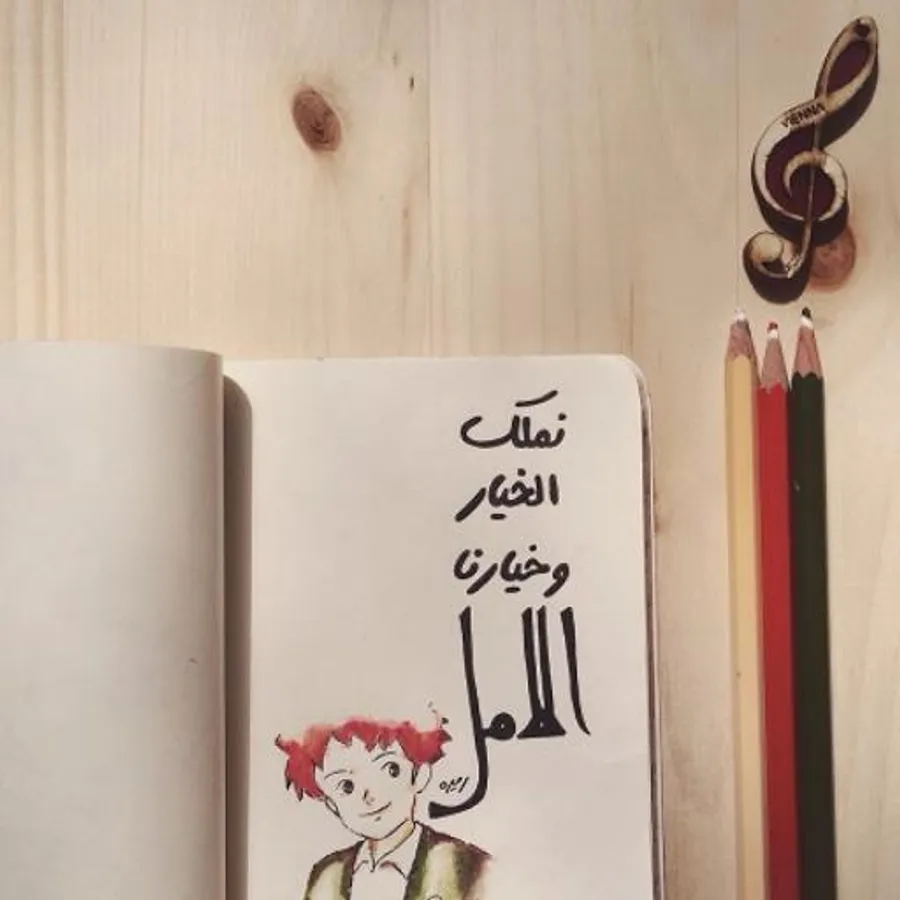 VIENNA
نملك
الخيار
وخيارنا
الامل
اميره